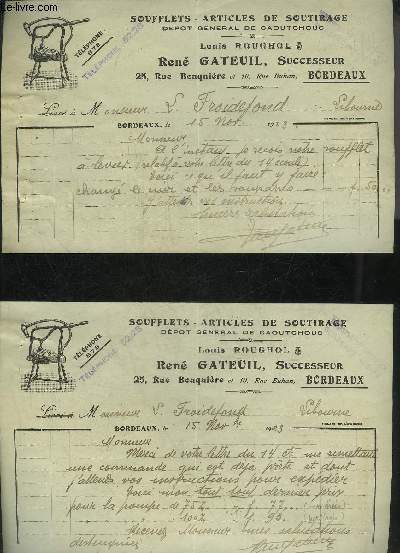 www.le-livre.com
SOUFFLETS - ARTICLES DE SOUTIRAGE
DÉPOT GÉNÉRAL DE CAOUTCHOUC
Louis ROUGHOL &
René GATEUIL, SUCCESSEUR
25, Rue Bouquière et 10, Rue Buhan, BORDEAUX
TÉLÉPHONE
TÉLÉPHONE
Livré à Monsieur L. Froidefond Libourne
BORDEAUX, le 15 Nov. 1923
Monsieur
A l'instant je reçois votre soufflet
à lever votre lettre du 14 cnt
Voici ce qu'il faut y faire
changé le cuir et les
J'attends vos instructions
Sincères salutations
SOUFFLETS - ARTICLES DE SOUTIRAGE
DÉPOT GÉNÉRAL DE CAOUTCHOUC
Louis ROUGHOL &
René GATEUIL, SUCCESSEUR
25, Rue Bouquière et 10, Rue Buhan, BORDEAUX
TÉLÉPHONE
TÉLÉPHONE
Livré à Monsieur L. Froidefond Libourne
BORDEAUX, le 15 Nov. 1923
Monsieur
Merci de votre lettre du 14 ct. me remettant
une commande qui est déjà prête et dont
j'attends vos instructions pour expédier
Voici mon tout tout dernier prix
pour la pompe de
Recevez Monsieur mes salutations
distinguées